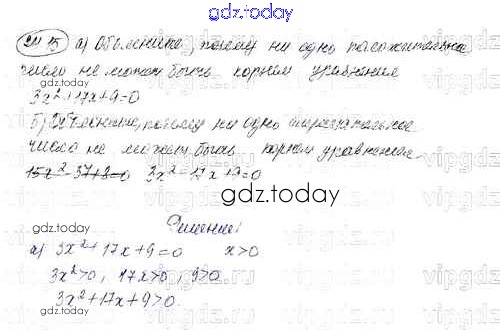 gdz.today
а) Объясните, почему ни одно положительное
число не может быть корнем уравнения
3x²+17x+9=0
б) Объясните, почему ни одно отрицательное
число не может быть корнем уравнения
15x²-37+8=0 3x²-17x+9=0
gdz.today
Решение:
а) 3x²+17x+9=0 x>0
3x²>0, 17x>0, 9>0
3x²+17x+9>0.
gdz.today
vipgdz